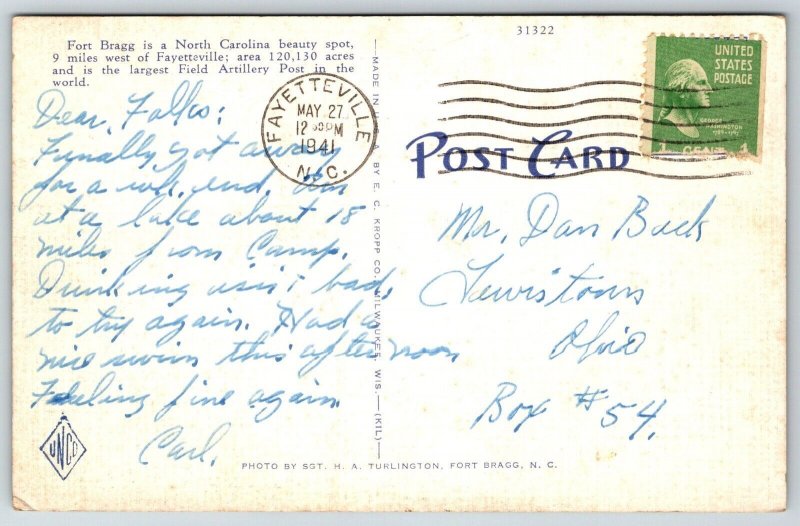 31322
Fort Bragg is a North Carolina beauty spot,
9 miles west of Fayetteville; area 120,130 acres
and is the largest Field Artillery Post in the
world.
Dear Folks:
Finally got away
for a wk. end. Am
at a lake about 18
miles from Camp.
Drinking isn't bad,
to try again. Had a
nice swim this afternoon
Feeling fine again
Carl.
MADE IN BY E. C. KROPP CO., MILWAUKEE, WIS. (KIL)
FAYETTEVILLE
MAY 27
12 PM
1941
N. C.
UNITED
STATES
POSTAGE
GEORGE
WASHINGTON
1789-1797
POST CARD
Mr. Dan Buck
Lewistown
Ohio
Box #54.
UNCO
PHOTO BY SGT. H. A. TURLINGTON, FORT BRAGG, N. C.